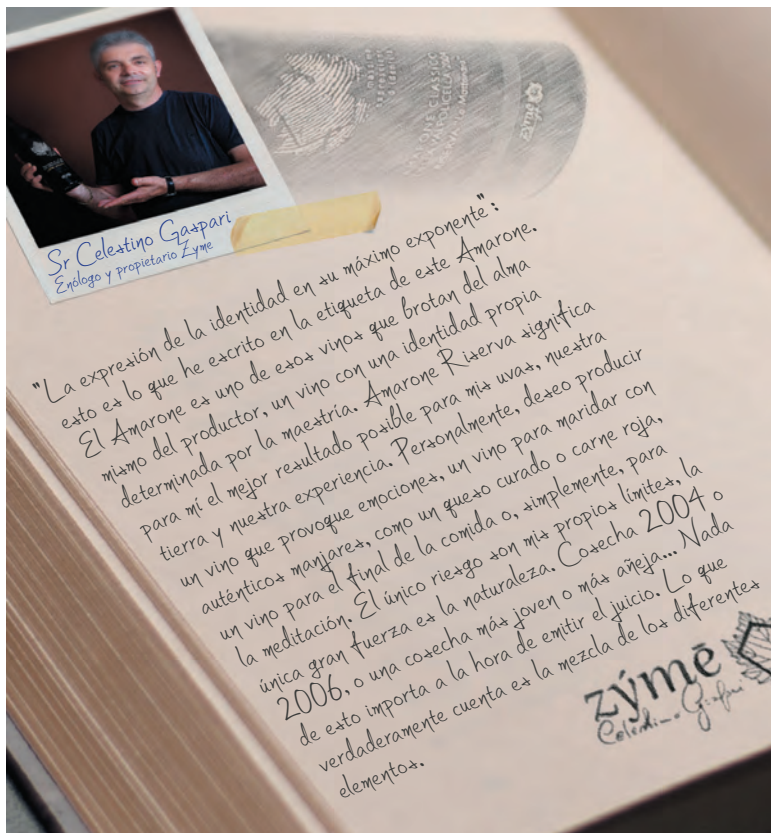 Sr Celestino Gaspari
Enólogo y propietario Zyme
"La expresión de la identidad en su máximo exponente":
esto es lo que he escrito en la etiqueta de este Amarone.
El Amarone es uno de esos vinos que brotan del alma
mismo del productor, un vino con una identidad propia
determinada por la maestría. Amarone Riserva significa
para mí el mejor resultado posible para mis uvas, nuestra
tierra y nuestra experiencia. Personalmente, deseo producir
un vino que provoque emociones, un vino para maridar con
auténticos manjares, como un queso curado o carne roja,
un vino para el final de la comida o, simplemente, para
la meditación. El único riesgo son mis propios límites, la
única gran fuerza es la naturaleza. Cosecha 2004 o
2006, o una cosecha más joven o más añeja... Nada
de esto importa a la hora de emitir el juicio. Lo que
verdaderamente cuenta es la mezcla de los diferentes
elementos.
zýmē
Celestino Gaspari